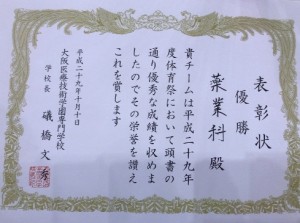 表彰状
優勝
薬業科 殿
貴チームは平成二十九年
度体育祭において頭書の
通り優秀な成績を収めま
したのでその栄誉を讃え
これを賞します
平成二十九年十月十日
大阪医療技術学園専門学校
学校長 礒橋文秀